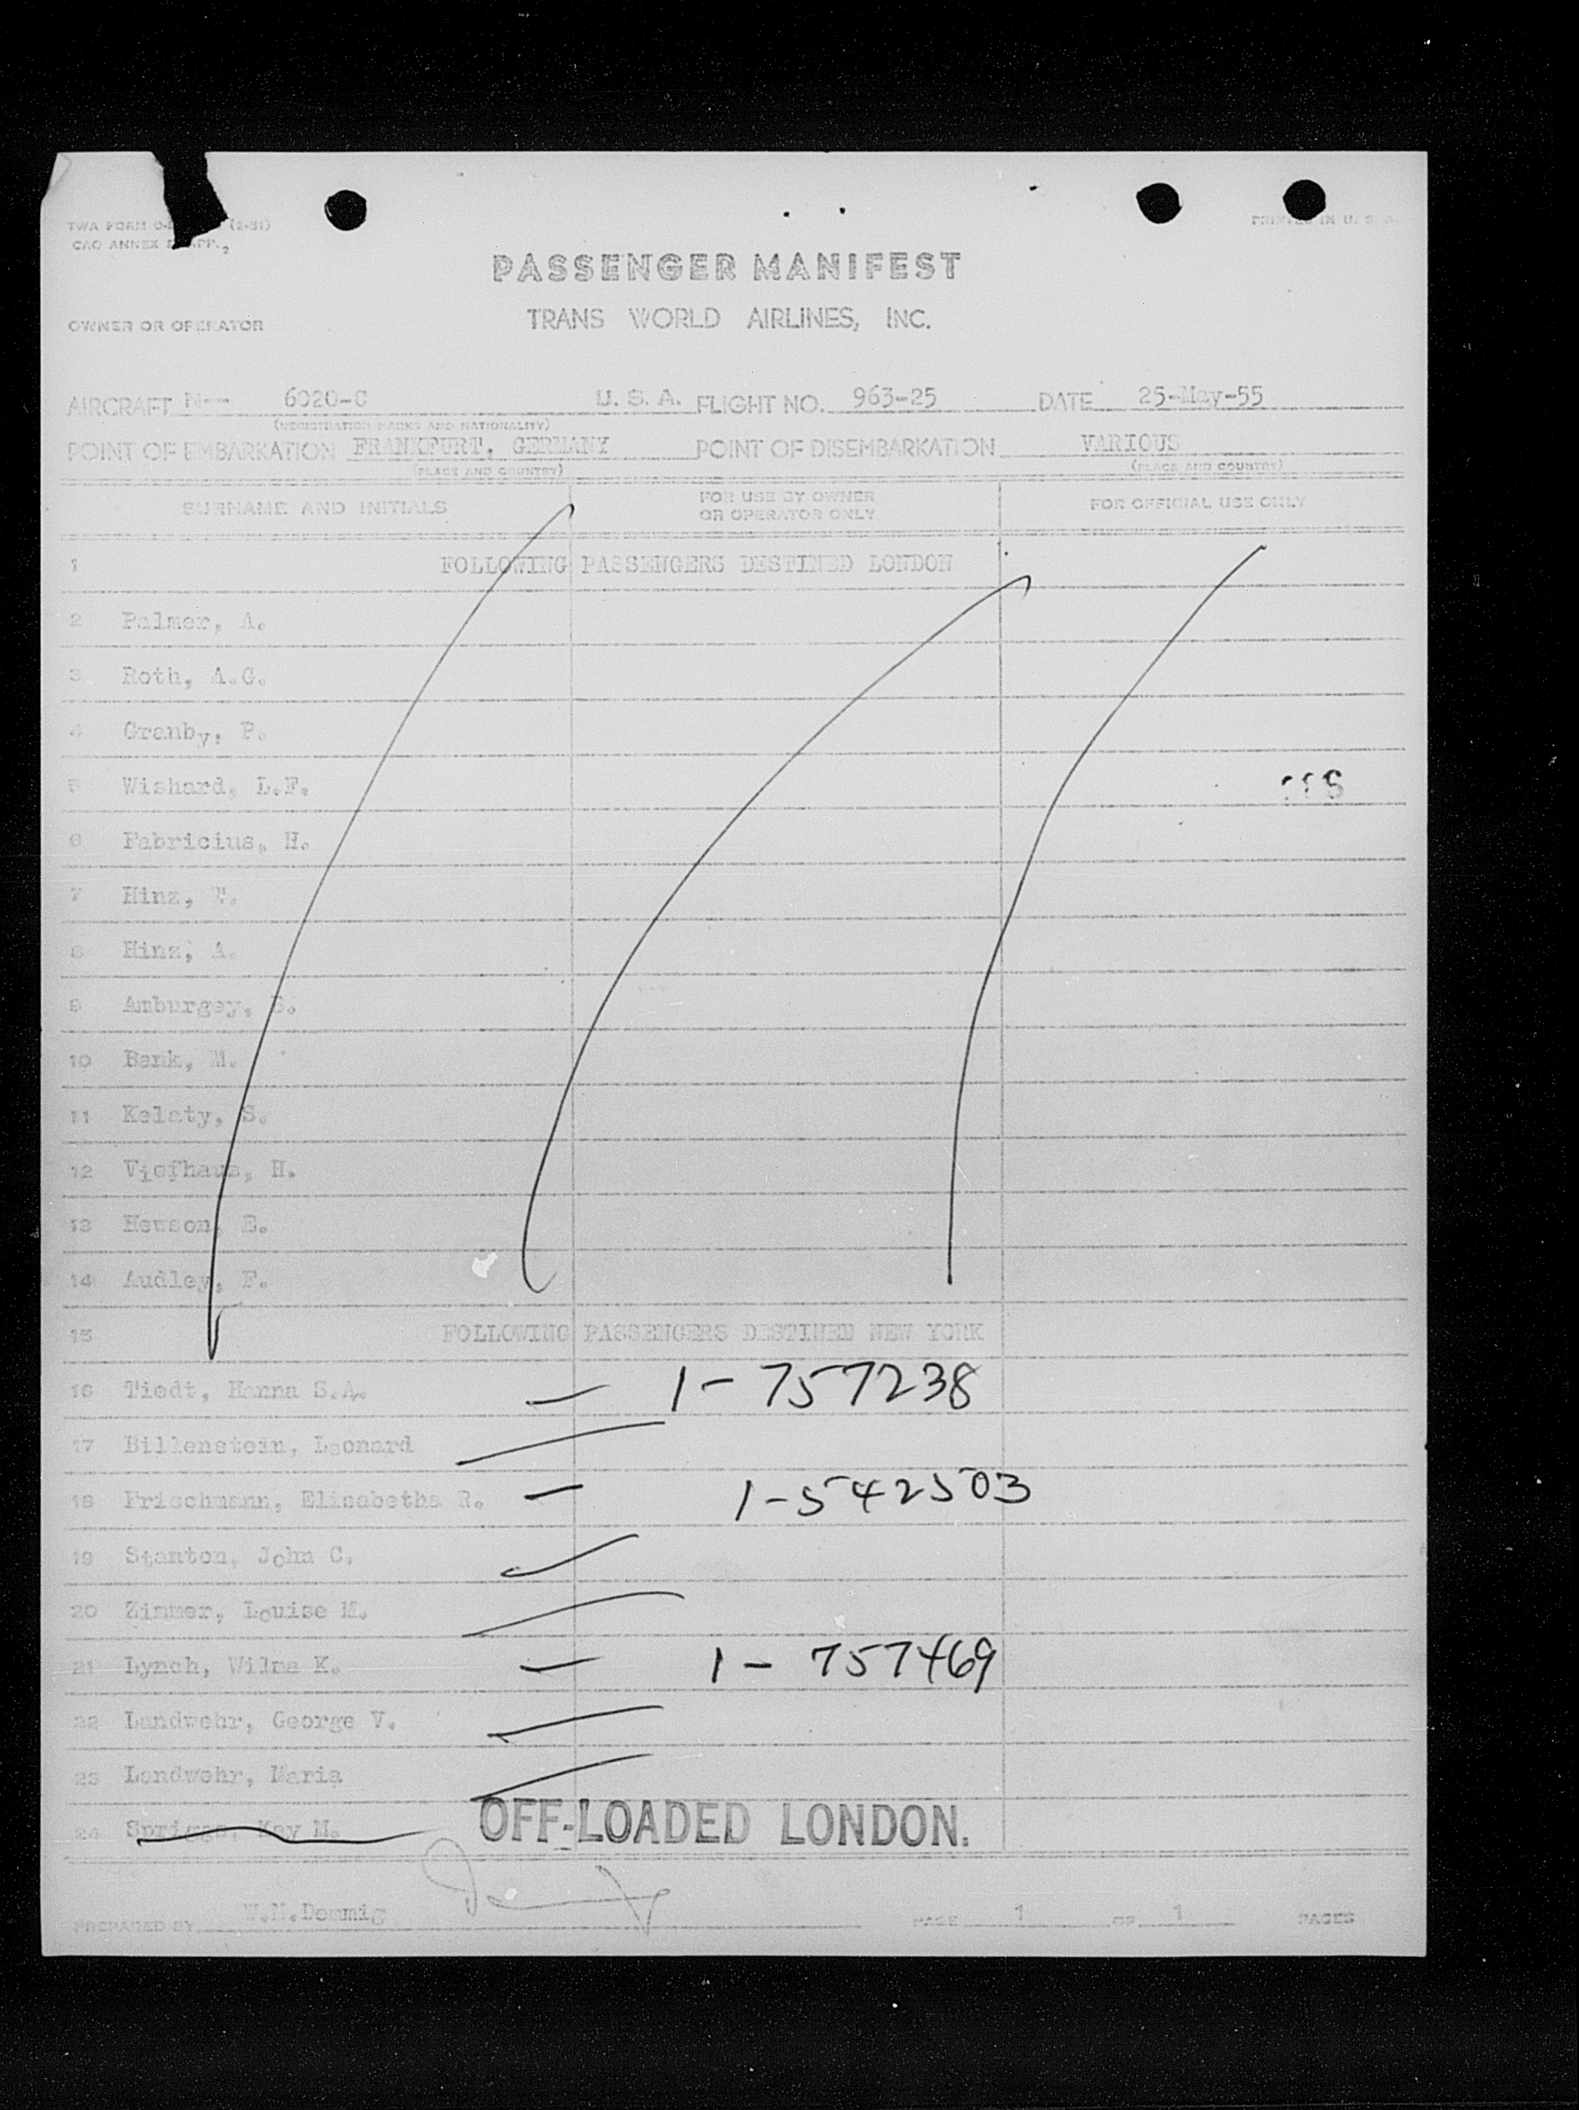 TWA FORM (2-51)
PRINTED IN U. S. A.
CAO ANNEX APP. 2
PASSENGER MANIFEST
OWNER OR OPERATOR TRANS WORLD AIRLINES, INC.
AIRCRAFT N-- 6020-C U. S. A. FLIGHT NO. 963-25 DATE 25-May-55
(REGISTRATION MARKS AND NATIONALITY)
POINT OF EMBARKATION FRANKFURT, GERMANY POINT OF DISEMBARKATION VARIOUS
(PLACE AND COUNTRY) (PLACE AND COUNTRY)
SURNAME AND INITIALS FOR USE BY OWNER OR OPERATOR ONLY FOR OFFICIAL USE ONLY
1 FOLLOWING PASSENGERS DESTINED LONDON
2 Palmer, A.
3 Roth, A.G.
4 Granby, P.
5 Wishard, L.F.
6 Fabricius, H.
7 Hinz, W.
8 Hinz, A.
9 Amburgey, B.
10 Bank, M.
11 Kelaty, S.
12 Viefhaus, H.
13 Hewson, E.
14 Audley, F.
15 FOLLOWING PASSENGERS DESTINED NEW YORK
16 Tiedt, Hanna S.A. 1-757238
17 Billenstein, Leonard
18 Frischmann, Elisabetha R. 1-542503
19 Stanton, John C.
20 Zimmer, Louise M.
21 Lynch, Wilma K. 1-757469
22 Landwehr, George V.
23 Landwehr, Maria
24 Spriggs, Kay M. OFF-LOADED LONDON.
PREPARED BY W.N.Dommig PAGE 1 OF 1 PAGES